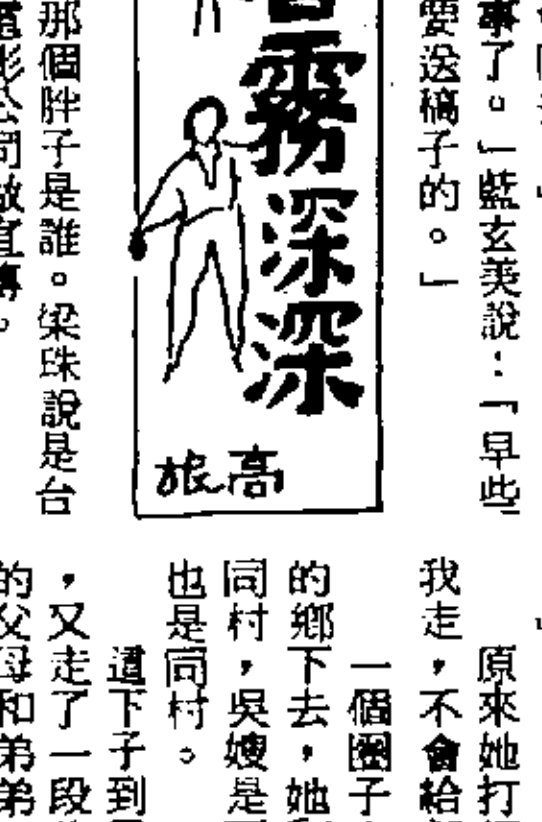 事了。」藍玄美說：「早些
要送稿子的。」
霧深深
高旅
那個胖子是誰。梁珠說是台
電影公司做宣傳。
原來她打
我走，不會給
一個圈子
的鄉下去，她
同村，吳嫂是
也是同村。
這下子到
，又走了一段
的父母和弟弟